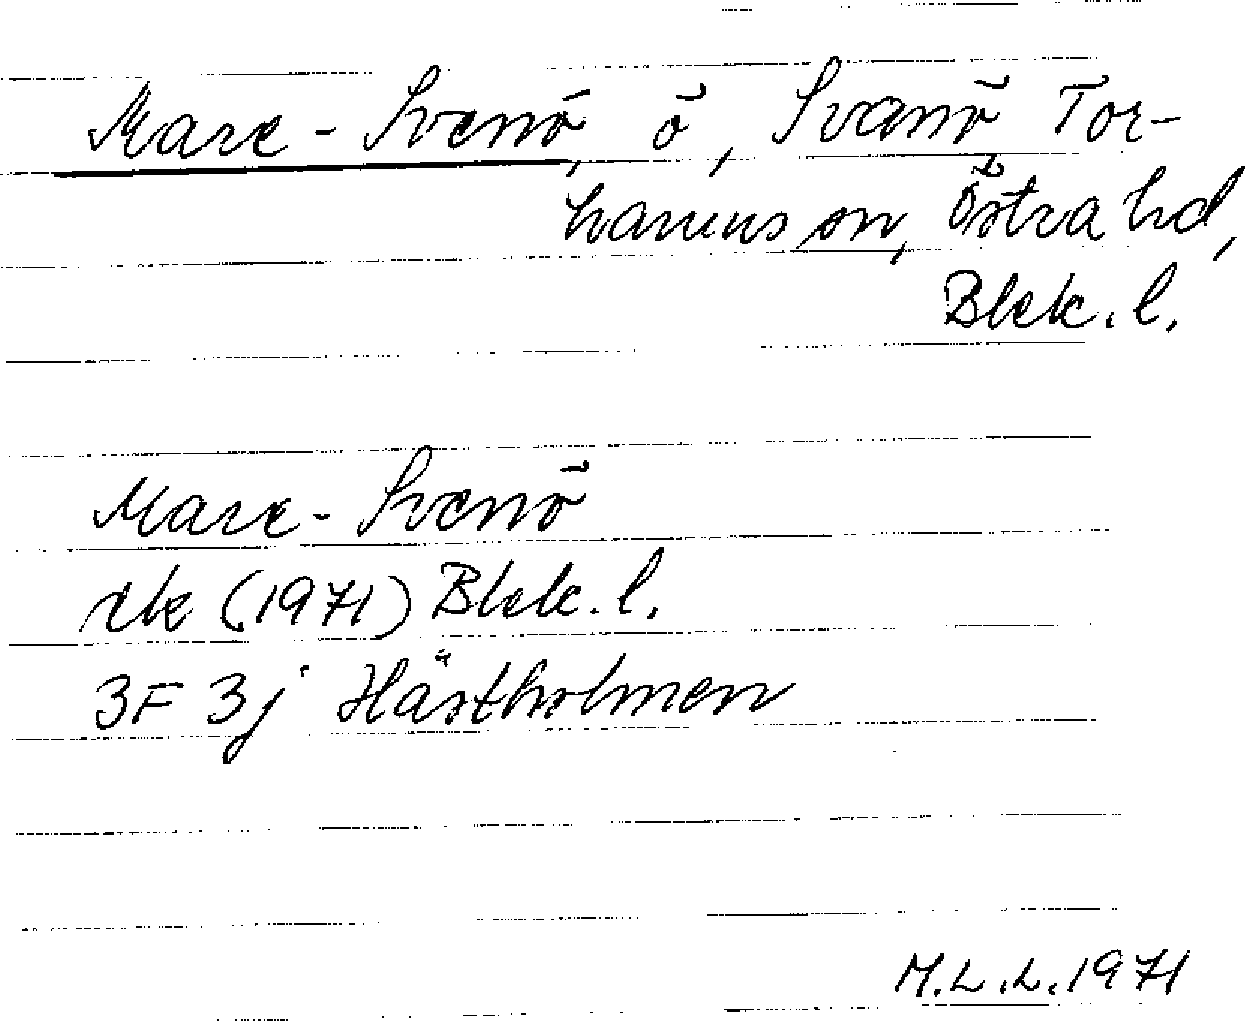 Mare-Svenö, ö, Svanö Tor-
hamns sn, Östra hd,
Blek. l.
Mare-Svenö
ek (1971) Blek. l.
3F 3j Hästholmen
M.L.L. 1971